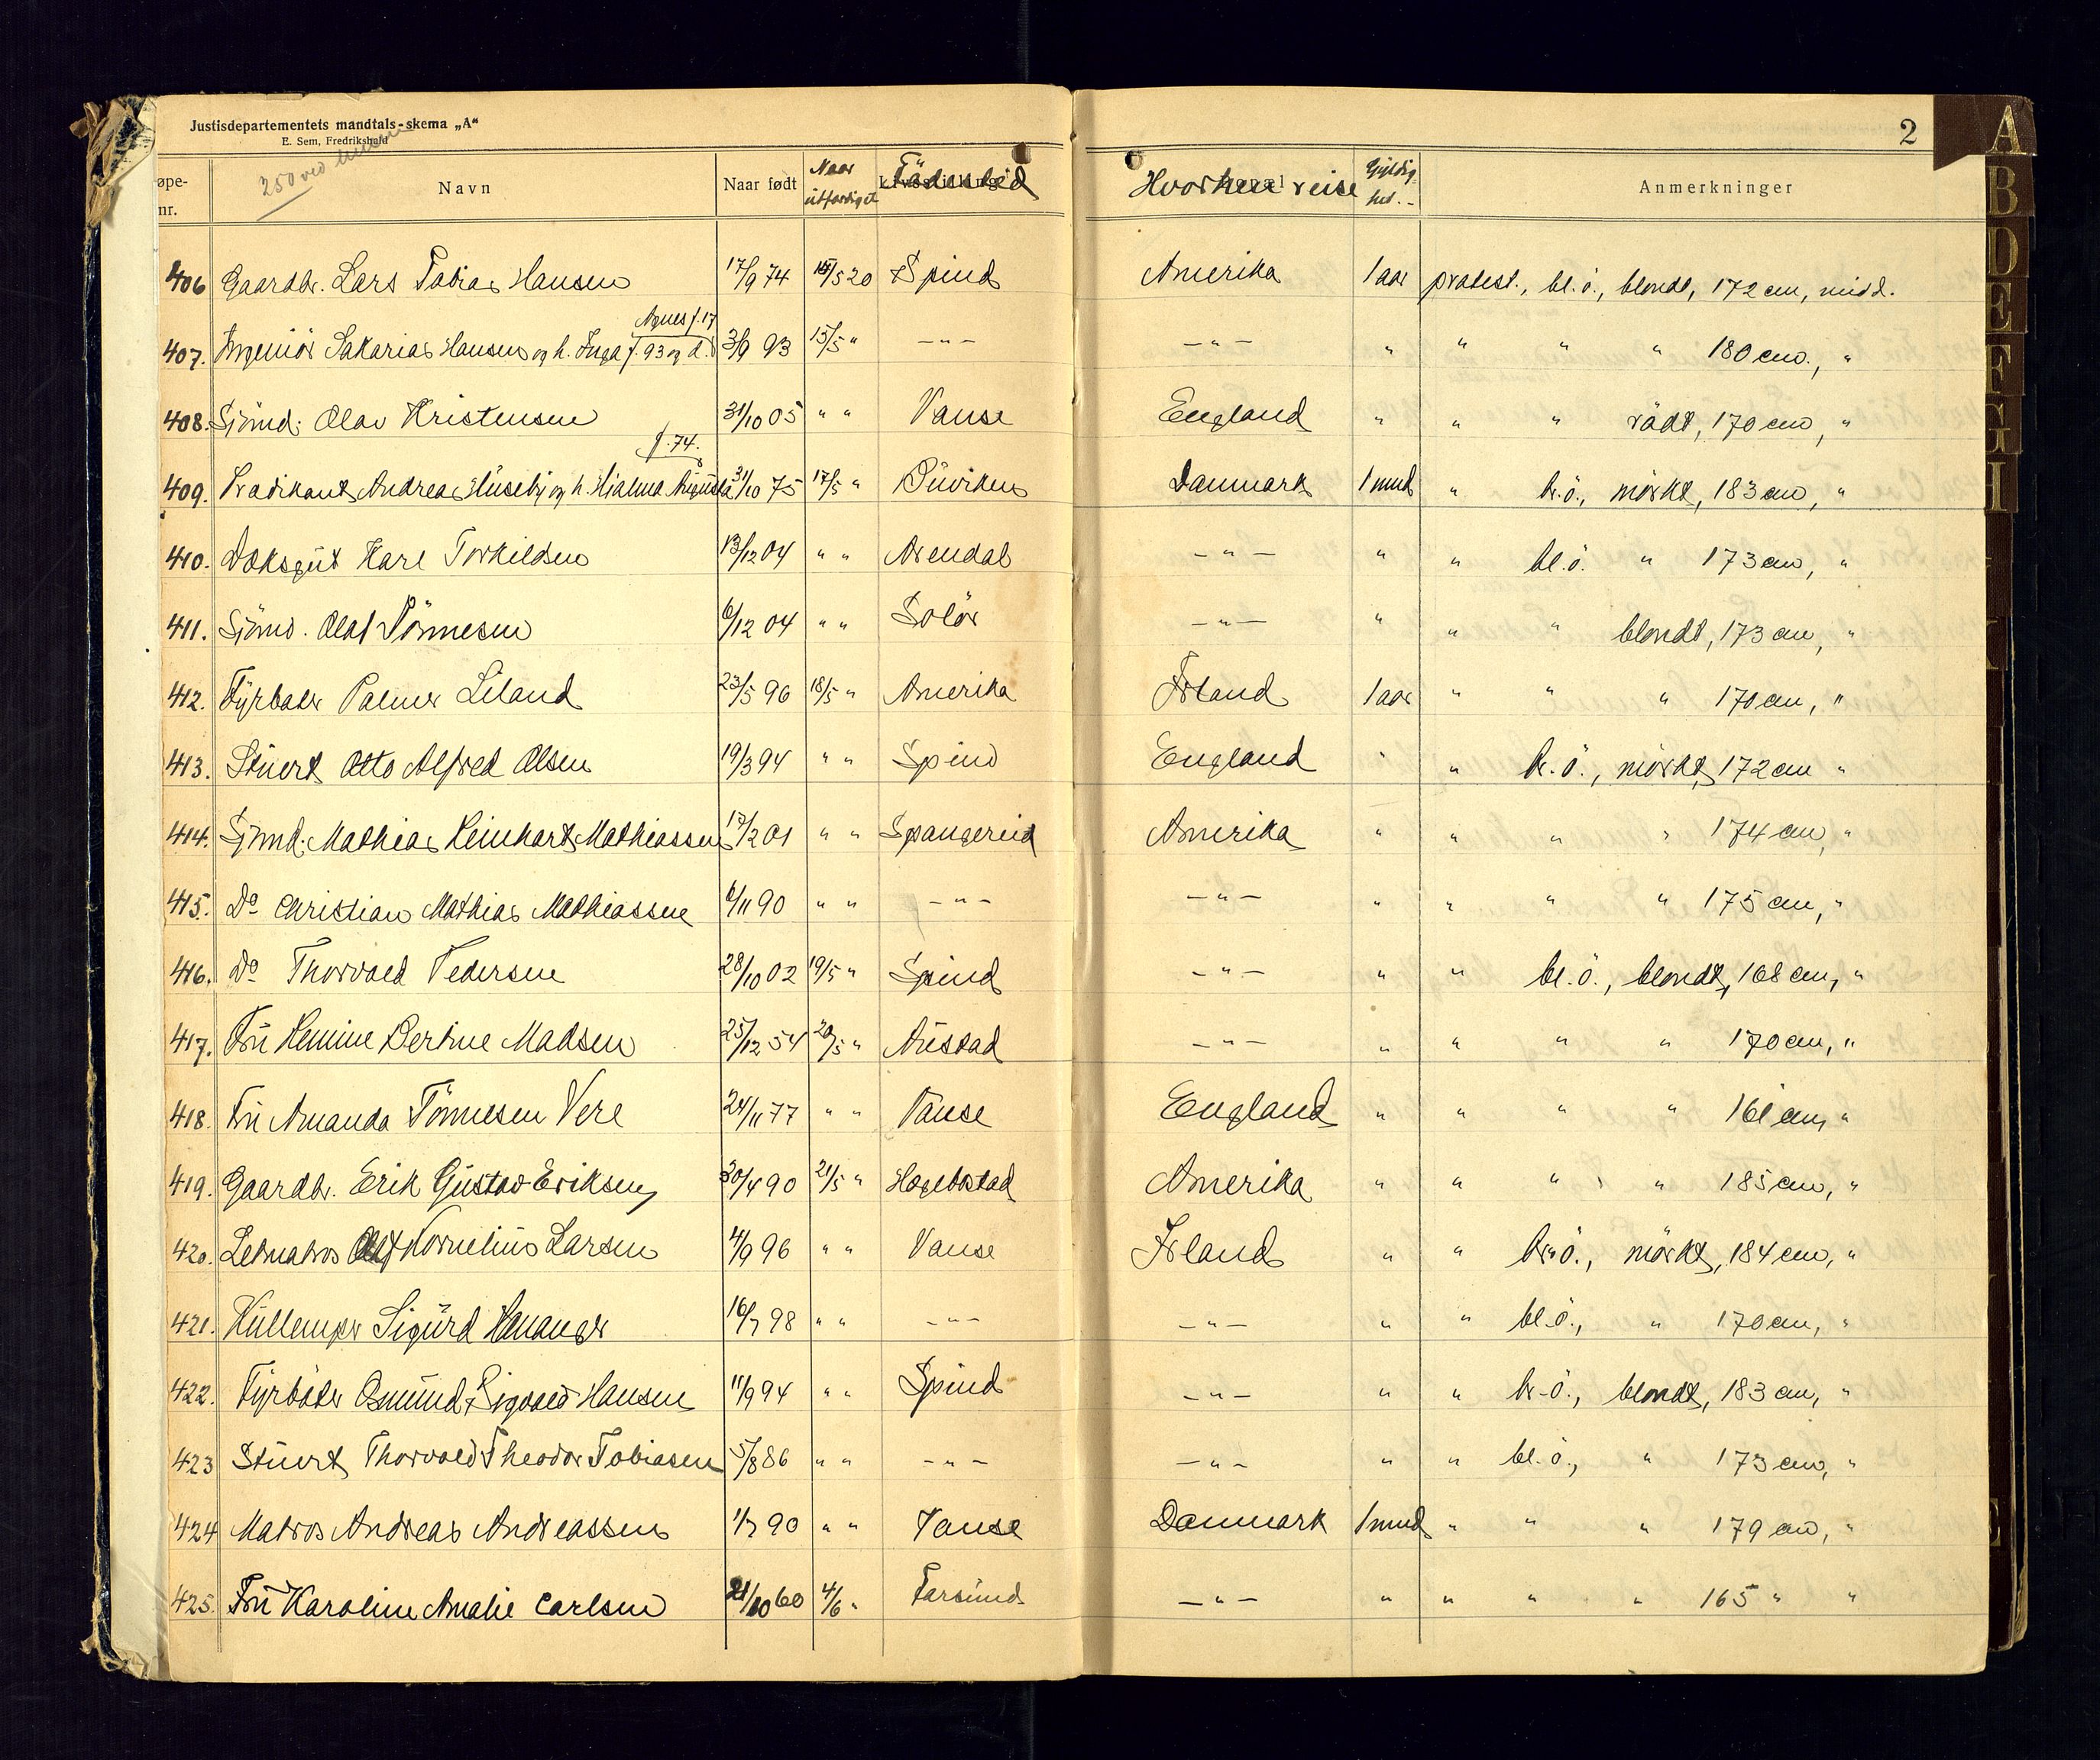 Justisdepartementets mandtals-skema „A“
E. Sem, Fredrikshald
250 ved
2
øpe-nr. Navn Naar født Naar utfærdiget Fødested Hvorhen reise Gyldighet. Anmerkninger
406 Gaardbr. Lars Tobias Hansen 17/9 74 15/5 20 Spind Amerika 1 aar protest., bl. ö., blondt, 172 cm, midd.
Agnes f. 17
407. Ingeniör Sakarias Hansen og h. Inga f. 93 og d. 3/9 93 15/5 " -"- -"- " " " " 180 cm., "
408. Sjömd. Olav Kristensen 31/10 05 " " Vanse England " " " rödt, 170 cm, "
f. 74.
409. Prædikant Andreas Huseby og h. Hjalma Augusta 31/10 75 17/5 " Buviken Danmark 1 mnd " br. ö., mörkt, 183 cm, "
410. Dæksgut Karl Torkildsen 13/12 04 " " Arendal -"- " " bl. ö. " 173 cm, "
411. Sjömd. Olaf Tönnesen 6/12 04 " " Solör -"- " " " blondt, 173 cm, "
412. Fyrböter Palmer Liland 23/5 96 18/5 " Amerika Irland 1 aar " " " 170 cm, "
413. Stuert Otto Alfred Olsen 19/3 94 " " Spind England " " br. ö., mörkt, 172 cm "
414. Sjömd. Mathias Reinhart Mathiassen 17/2 01 " " Spangereid Amerika " " " " 174 cm, "
415. Do Christian Mathias Mathiassen 6/11 90 " " -"- -"- " " " " 175 cm, "
416. Do Thorvald Pedersen 28/10 02 19/5 " Spind -"- " " bl. ö., blondt, 168 cm, "
417. Fru Hemine Bertine Madsen 25/12 54 20/5 " Austad -"- " " " " 170 cm, "
418. Fru Amanda Tönnesen Vere 24/11 77 " " Vanse England " " " " 161 cm, "
419. Gaardbr. Erik Gustav Eriksen 30/4 90 21/5 " Hægebostad Amerika " " " " 185 cm, "
420. Letmatros Olaf Kornelius Larsen 4/9 96 " " Vanse Irland " " br. ö., mörkt, 184 cm, "
421. Kullemper Sigurd Hananger 16/7 98 " " -"- -"- " " bl. ö., " 170 cm, "
422. Fyrböter Osmund Sigvald Hansen 11/9 94 " " Spind -"- " " br. ö., blondt, 183 cm, "
423 Stuert Thorvald Theodor Tobiasen 5/8 86 " " -"- -"- " " bl. ö., " 173 cm, "
424 Matros Andreas Andreassen 1/7 90 " " Vanse Danmark 1 mnd " " " 179 cm, "
425. Fru Karoline Amalie Carlsen 21/10 60 4/6 " Farsund -"- " " " " 165 " "
A
B
D
E
F
G
I